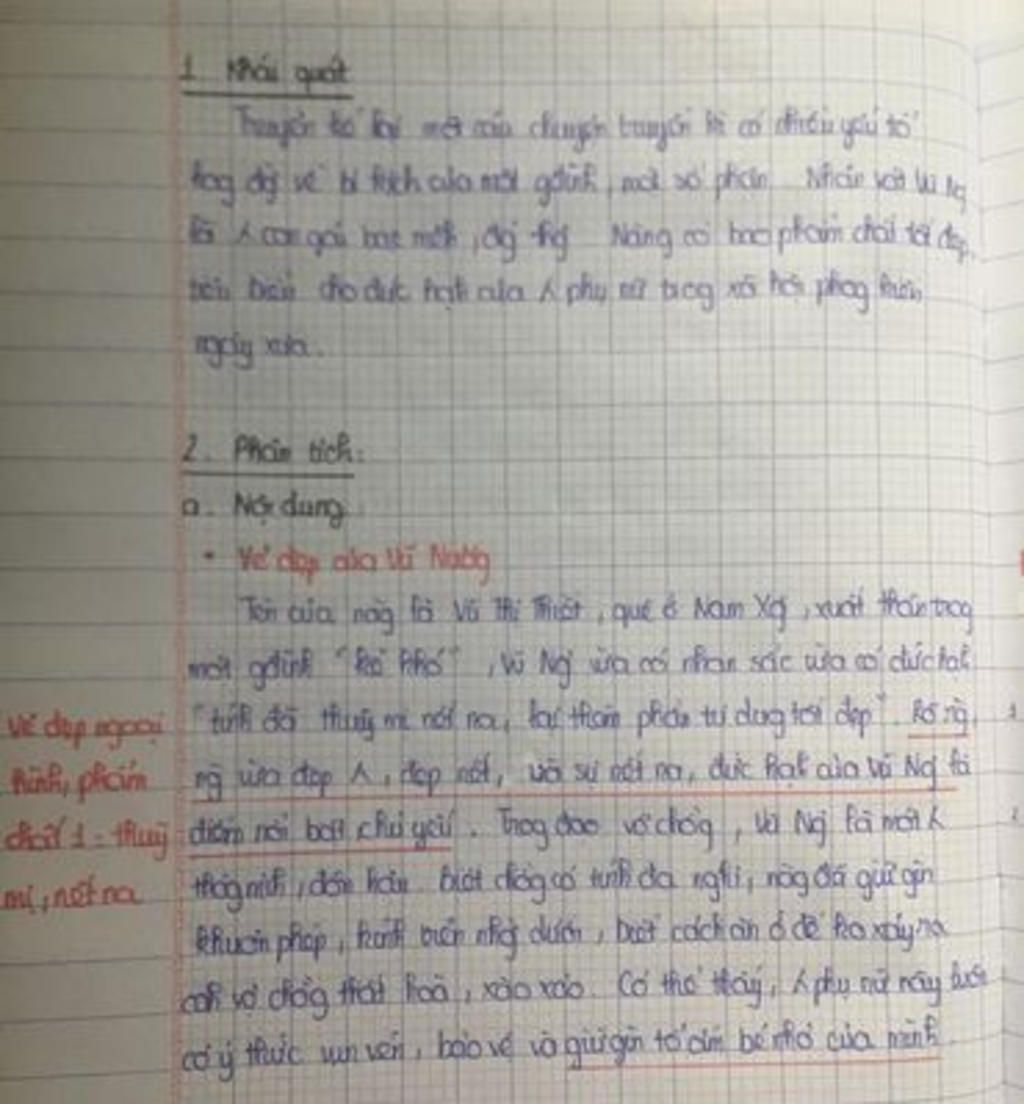 1 Khái quát
Truyện kể lại một câu chuyện truyền kì có nhiều yếu tố
trog đó về bi kịch của một gđình, một số phận. Nhân vật Vũ Ng
là con gái bạc mệnh. Nàng có bao phẩm chất tốt đẹp,
tiêu biểu cho đức hạnh của phụ nữ trog xã hội phog kiến
ngày xưa.
2. Phân tích:
a. Nội dung
• Vẻ đẹp của Vũ Nương
Tên của nàg là Vũ Thị Thiết, quê ở Nam Xg, xuất thân trog
một gđình "kẻ khó", Vũ Ng vừa có nhan sắc vừa có đức hạt
"tính đã thuỳ mị nết na, lại thêm phần tư dung tốt đẹp". Rõ rg,
ng vừa đẹp, đẹp nết, và sự nết na, đức hạt của Vũ Ng là
điểm nổi bật chủ yếu. Trog đạo vợ chồg, Vũ Ng là một
thôg mih, đôn hậu. Biết chồg có tính đa nghi, nàg đã giữ gìn
khuôn phép, biết cách ăn ở để ko xảy ra
cảh vợ chồg thất hoà, xào xáo. Có thể thấy, phụ nữ này luôn
có ý thức vun vén, bảo vệ và giữ gìn tổ ấm bé nhỏ của mình.
Vẻ đẹp ngoại
hình, phẩm
chất 1: thuỳ
mị, nết na